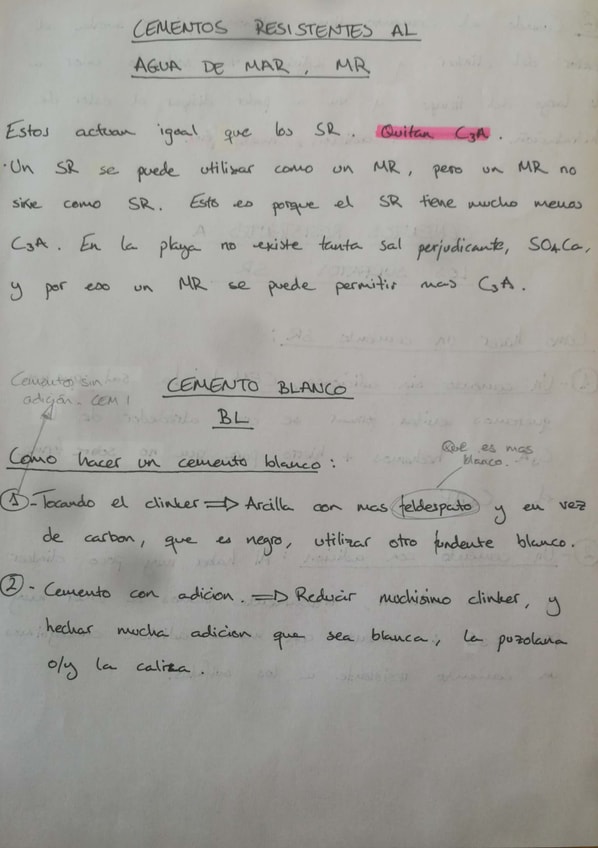 CEMENTOS RESISTENTES AL
AGUA DE MAR, MR
Estos actuan igoal que los SR. Quitan C₃A.
·Un SR se puede utilizar como un MR, pero un MR no
sirve como SR. Esto es porque el SR tiene mucho menos
C₃A. En la playa no existe tanta sal perjudicante, SO₄Ca,
y por eso un MR se puede permitir mas C₃A.
Cementos sin
adición - CEM I
CEMENTO BLANCO
BL
Como hacer un cemento blanco:
Que es mas
blanco.
① - Tocando el clinker ⇒ Arcilla con mas feldespato y en vez
de carbon, que es negro, utilizar otro fundente blanco.
② - Cemento con adicion. ⇒ Reducir muchisimo clinker, y
hechar mucha adicion que sea blanca, la puzolana
o/y la caliza.